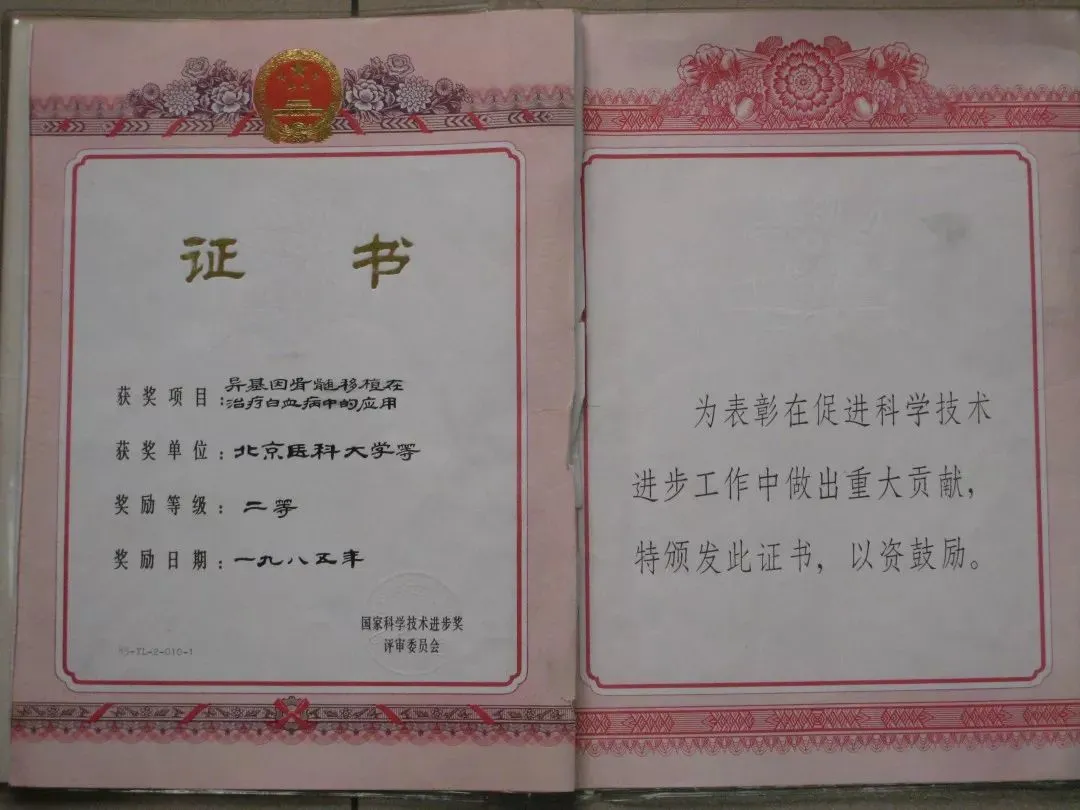 证书
获奖项目：异基因骨髓移植在
治疗白血病中的应用
获奖单位：北京医科大学等
奖励等级：二等
奖励日期：一九八五年
国家科学技术进步奖
评审委员会
为表彰在促进科学技术
进步工作中做出重大贡献，
特颁发此证书，以资鼓励。